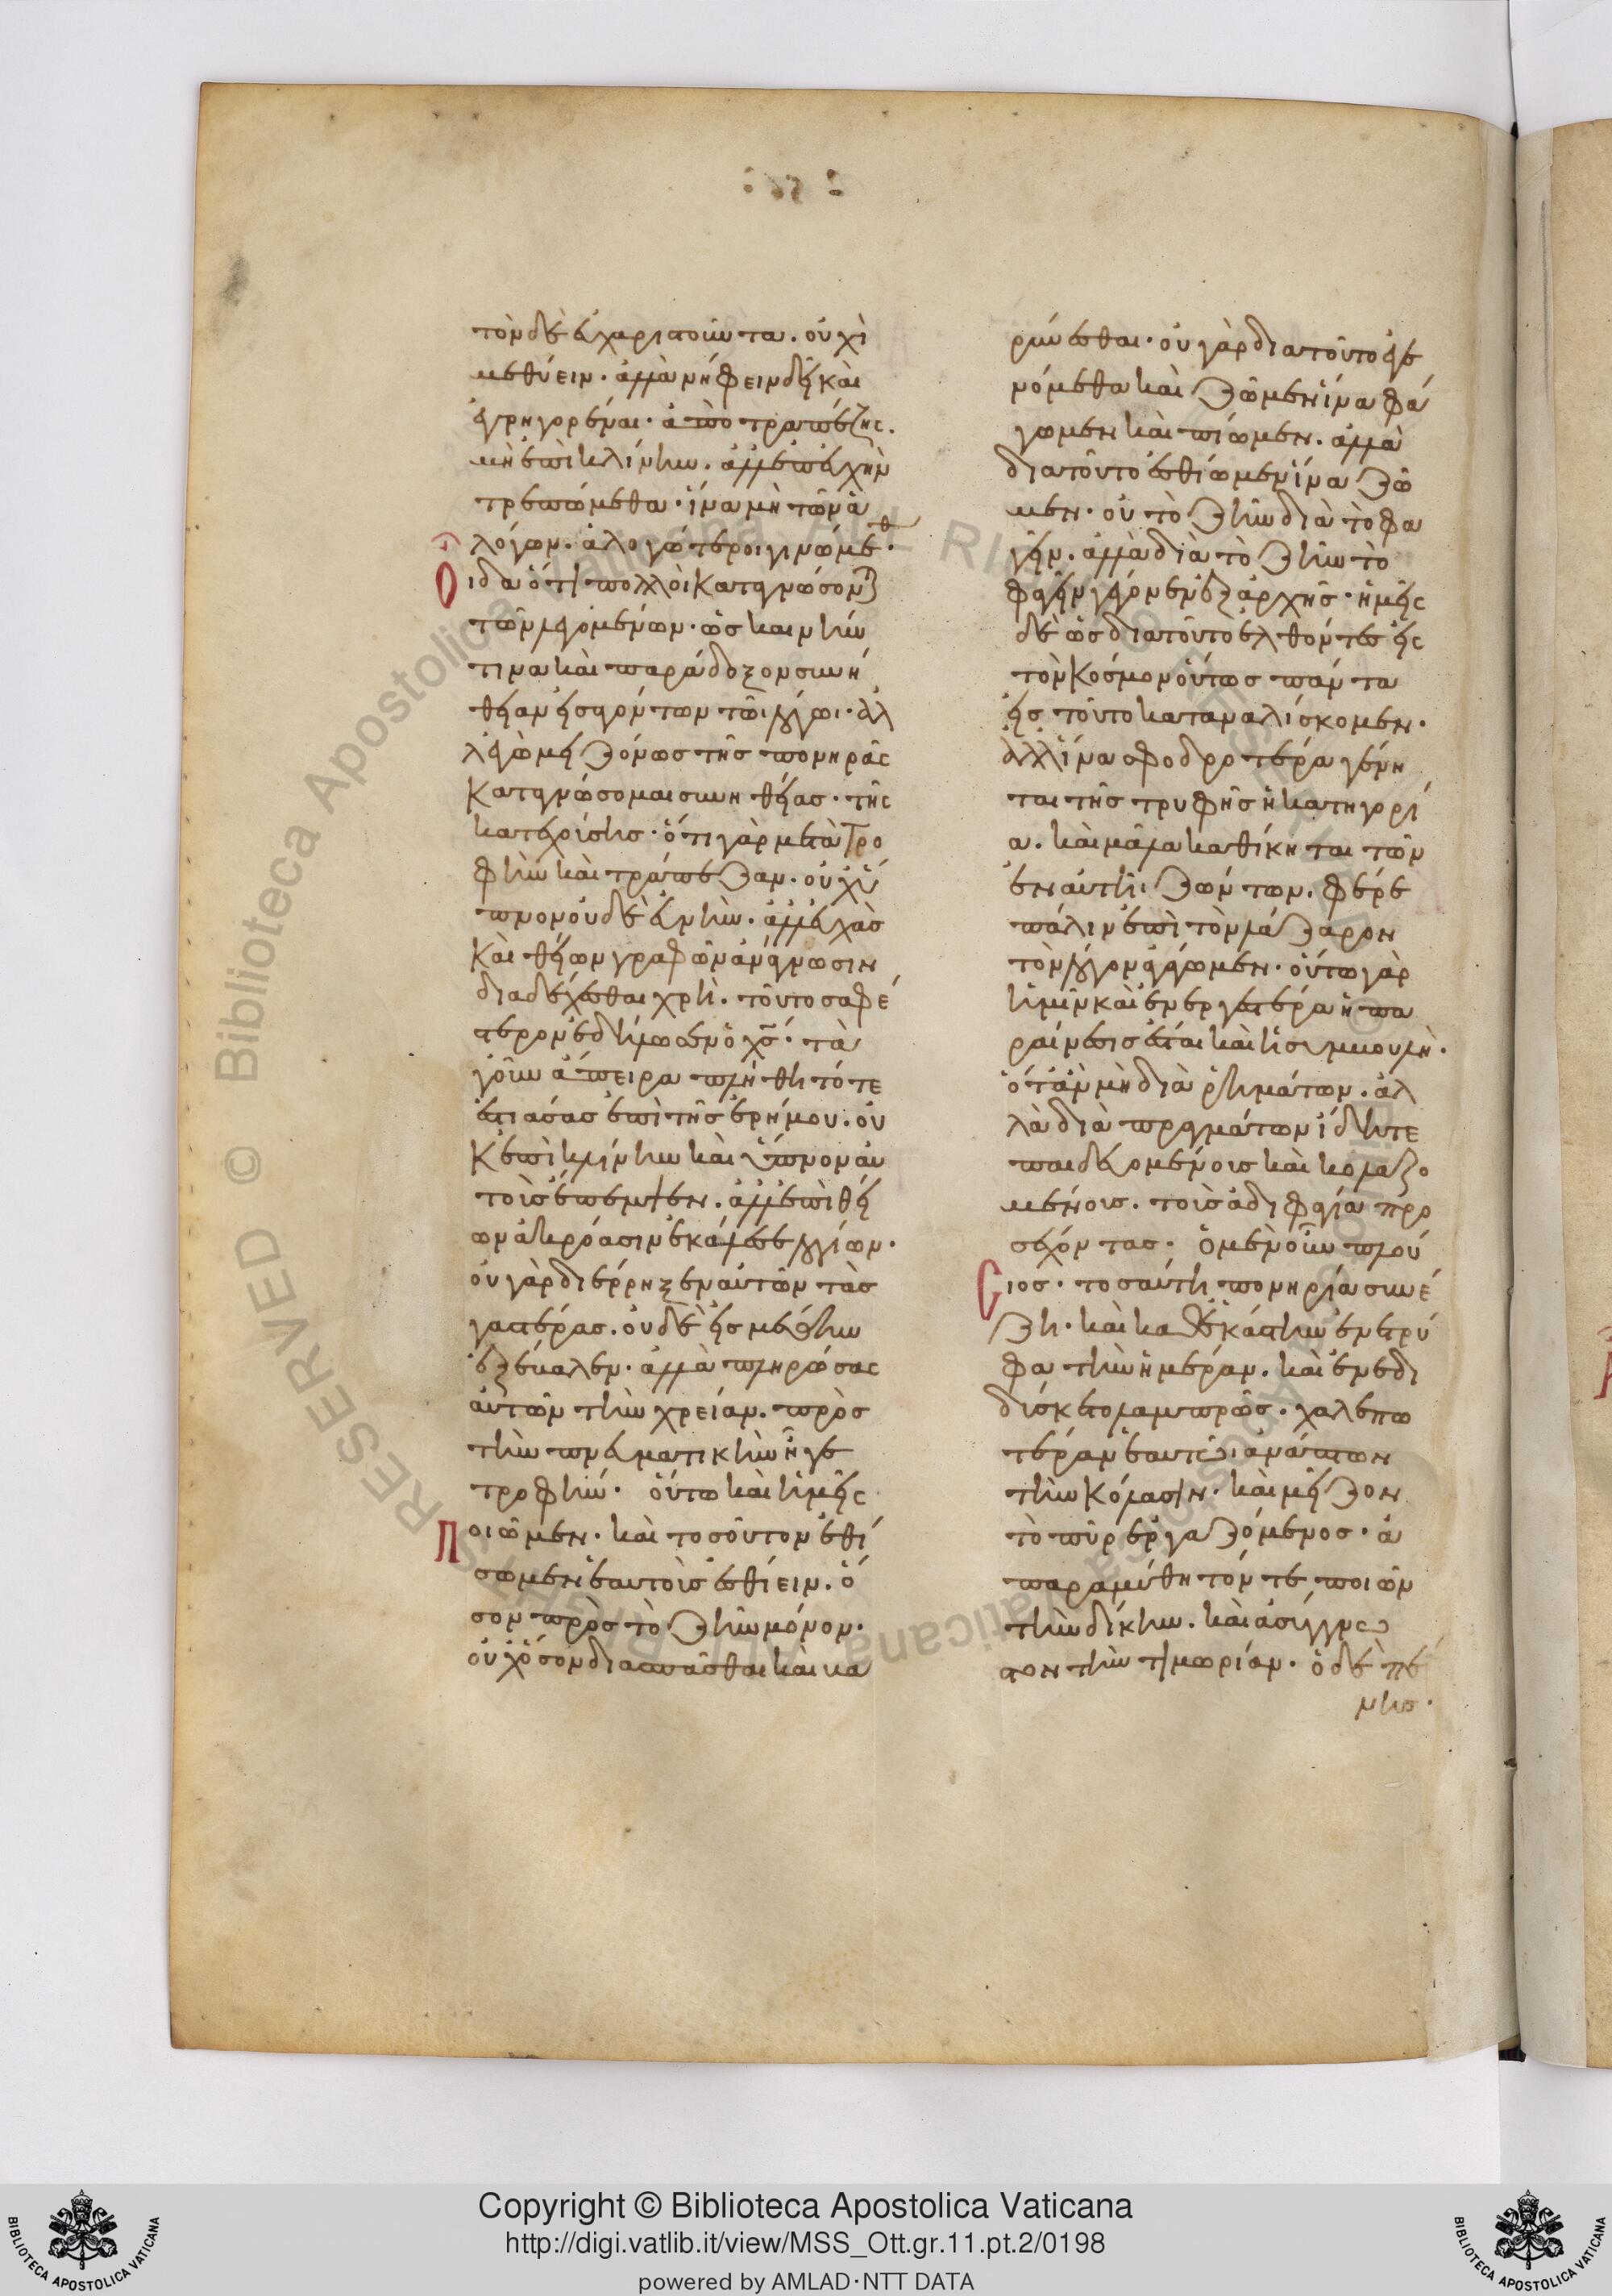 τὸν δὲ εὐχαριστοῦντα. οὐχὶ
μεθύειν. ἀλλὰ νήφειν δεῖ καὶ
ἐγρηγορέναι. ἀπὸ τραπέζης.
μὴ ἐπὶ κλίνην. ἀλλ' ἐπ' εὐχὴν
τρεπώμεθα. ἵνα μὴ τῶν ἀ
λόγων. ἀλογώτεροι γινώμεθ.
Οἶδα ὅτι πολλοὶ καταγνώσονται
τῶν λεγομένων. ὡς καινήν
τινα καὶ παράδοξον συνή
θειαν εἰσαγόντων τῶι λόγωι. ἀλ
λ' ἐγὼ μειζόνως τῆς πονηρᾶς
καταγνώσομαι συνηθείας. τῆς
κατεχούσης. ὅτι γὰρ μετὰ τρο
φὴν καὶ τράπεζαν. οὐχ ὕ
πνον οὐδὲ εὐνὴν. ἀλλ' εὐχὰς
καὶ θείων γραφῶν ἀνάγνωσιν
διαδέχεσθαι χρή. τοῦτο σαφέ
στερον ἐδήλωσεν ὁ χς. τὰ
γοῦν ἄπειρα πλήθη τότε
ἑστιάσας ἐπὶ τῆς ἐρήμου. οὐ
κ ἐπὶ κλίνην καὶ ὕπνον αὐ
τοὺς ἔπεμψεν. ἀλλ' ἐπὶ θεί
ων ἀκρόασιν ἐκάλεσε λογίων.
οὐ γὰρ διέρρηξεν αὐτῶν τὰς
γαστέρας. οὐδὲ εἰς μέθην
ἐξέκαλεν. ἀλλὰ πληρώσας
αὐτῶν τὴν χρείαν. πρὸς
τὴν πνευματικὴν ἦγε
τροφήν. οὕτω καὶ ἡμεῖς
Ποιῶμεν. καὶ τοσοῦτον ἐθί
σωμεν ἑαυτοὺς ἐσθίειν. ὅ
σον πρὸς τὸ ζῆν μόνον.
οὐχ ὅσον διασπᾶσθαι καὶ κα
ρύνεσθαι. οὐ γὰρ διατοῦτο ἐγε
νόμεθα καὶ ζῶμεν ἵνα φά
γωμεν καὶ πίωμεν. ἀλλὰ
διατοῦτο ἐσθίωμεν ἵνα ζῶ
μεν. οὐ τὸ ζῆν διὰ τὸ φα
γεῖν. ἀλλὰ διὰ τὸ ζῆν τὸ
φαγεῖν γέγονεν ἐξ ἀρχῆς. ἡμεῖς
δὲ ὡς διατοῦτο ἐλθόντες εἰς
τὸν κόσμον οὕτως πάντα
εἰς τοῦτο καταναλίσκομεν.
ἀλλ' ἵνα σφοδροτέρα γένη
ται τῆς τρυφῆς ἡ κατηγορί
α. καὶ μᾶλλα καθίκηται τῶν
ἐν αὐτῆι ζώντων. φέρε
πάλιν ἐπὶ τὸν λάζαρον
τὸν λόγον ἀγάγωμεν. οὕτω γὰρ
ἡμῖν καὶ ἐνεργεστέρα ἡ πα
ραίνεσις ἔσται καὶ ἡ συμβουλή.
ὅταν μὴ διὰ ῥημάτων. ἀλ
λὰ διὰ πραγμάτων ἴδητε
παιδευομένους καὶ κολαζο
μένους. τοὺς ἀδηφαγία προ
σέχοντας. ὁ μὲν οὖν πλού
Σιος. τοσαύτη πονηρία συνέ
ζη. καὶ καθ' ἑκάστην ἐνετρύ
φα τὴν ἡμέραν. καὶ ἐνεδι
δύσκετο λαμπρῶς. χαλεπω
τέραν ἑαυτῶι ἀνάπτων
τὴν κόλασιν. καὶ μεῖζον
τὸ πῦρ ἐργαζόμενος. ἀ
παραμύθητόν τε ποιῶν
τὴν δίκην. καὶ ἀσύγγνω
στον τὴν τιμωρίαν. ὁ δὲ πέ
νης.
Copyright © Biblioteca Apostolica Vaticana
http://digi.vatlib.it/view/MSS_Ott.gr.11.pt.2/0198
powered by AMLAD·NTT DATA